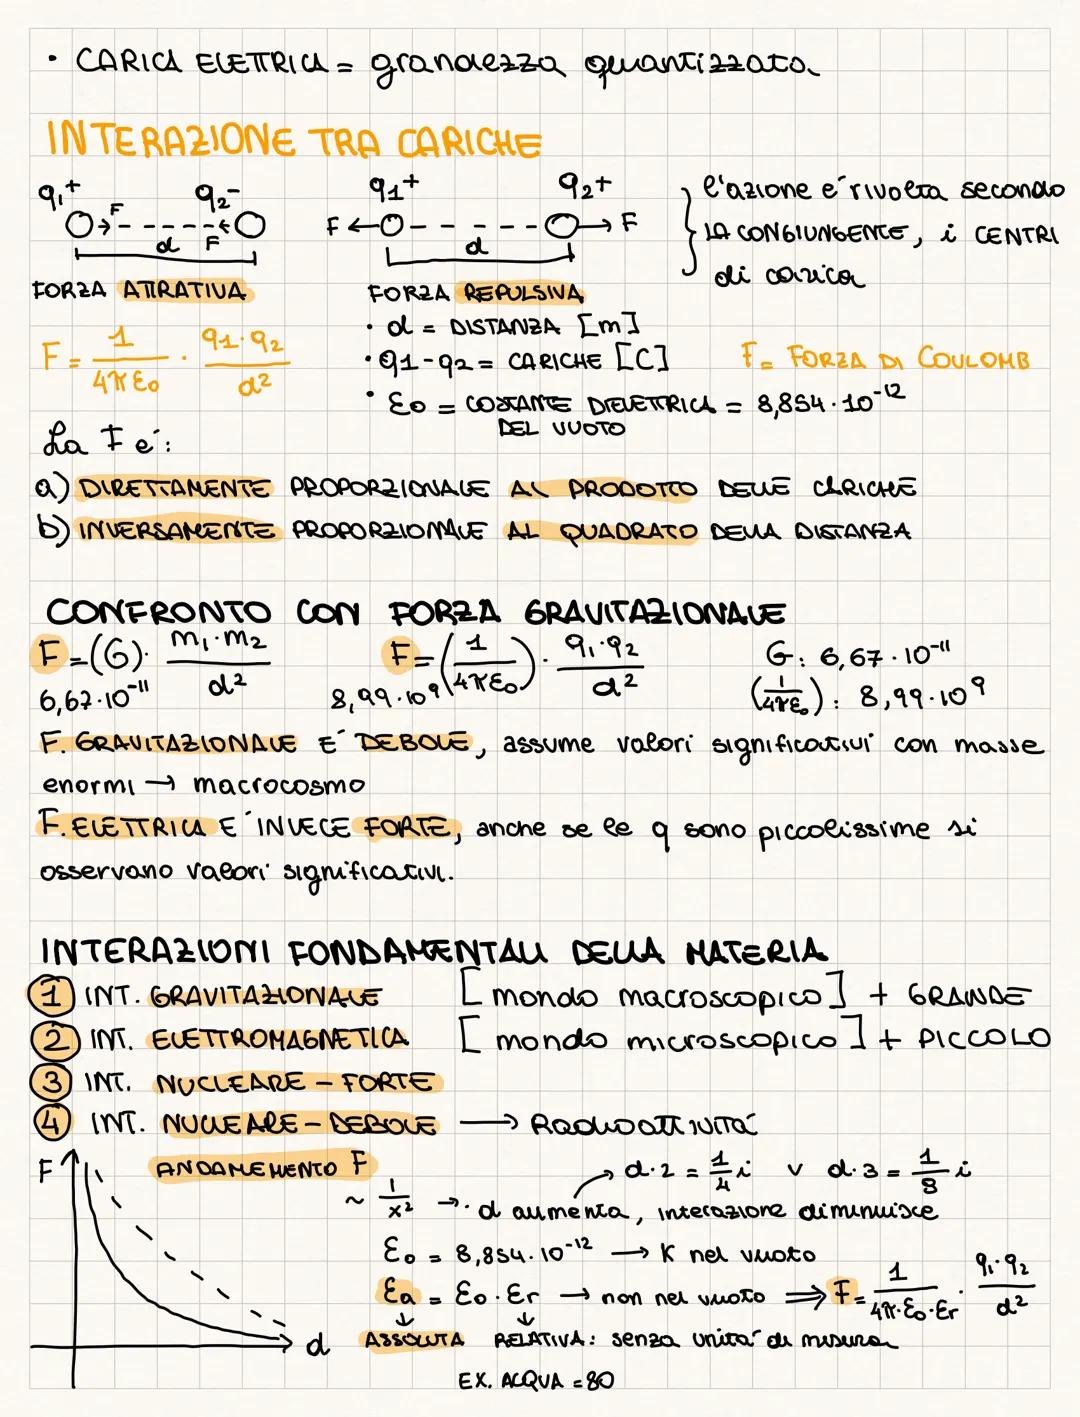 • CARICA ELETTRICA = grandezza quantizzata
INTERAZIONE TRA CARICHE
q₁+ q₂- q1+ q2+
F F d F d F
l'azione e' rivolta secondo
LA CONGIUNGENTE, i CENTRI
di carica
FORZA ATTRATIVA
FORZA REPULSIVA
• d = DISTANZA [m]
F = 1/4πε0 · q1·q2/d²
• q1-q2 = CARICHE [C]
F = FORZA DI COULOMB
• ε0 = COSTANTE DIELETTRICA = 8,854·10⁻¹²
DEL VUOTO
La F e':
a) DIRETTAMENTE PROPORZIONALE AL PRODOTTO DELLE CARICHE
b) INVERSAMENTE PROPORZIONALE AL QUADRATO DELLA DISTANZA
CONFRONTO CON FORZA GRAVITAZIONALE
F=(G)· m₁·m2/d² F=(1/4πε0)· q₁·q2/d² G: 6,67·10⁻¹¹
6,67·10⁻¹¹ 8,99·10⁹ (1/4πε0): 8,99·10⁹
F. GRAVITAZIONALE E' DEBOLE, assume valori significativi con masse
enormi → macrocosmo
F. ELETTRICA E' INVECE FORTE, anche se le q sono piccolissime si
osservano valori significativi.
INTERAZIONI FONDAMENTALI DELLA MATERIA
1 INT. GRAVITAZIONALE [mondo macroscopico] + GRANDE
2 INT. ELETTROMAGNETICA [mondo microscopico] + PICCOLO
3 INT. NUCLEARE - FORTE
4 INT. NUCLEARE - DEBOLE → Radioattività
F ANDAMEMENTO F
d·2 = 1/4 i v d·3 = 1/8 i
~ 1/x² →· d aumenta, interazione diminuisce
ε0 = 8,854·10⁻¹² → K nel vuoto
εa = ε0·εr → non nel vuoto ⇒ F = 1/4π·ε0·εr · q₁·q2/d²
d ASSOLUTA RELATIVA: senza unita' di misura
EX. ACQUA = 80